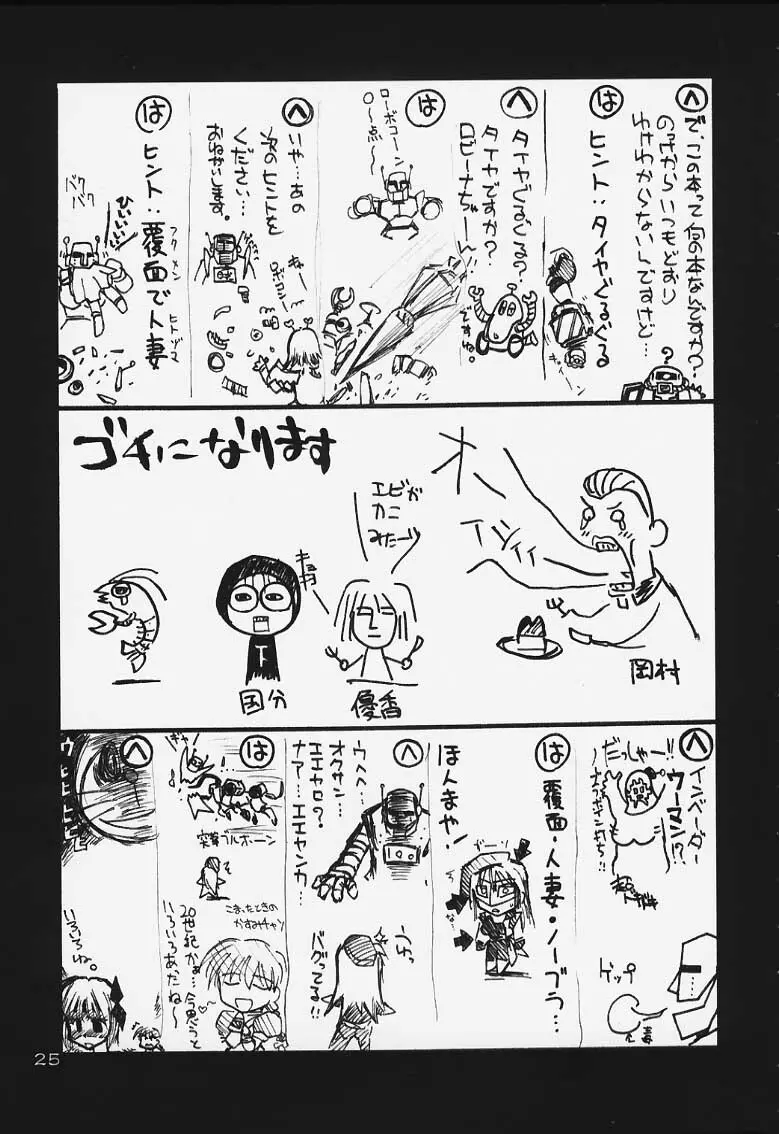 へ
で、この本って何の本なんですか?
のっけからいつもどおり
わけわからないんですけど…
?
は
ヒント:タイヤぐるぐる
へ
タイヤぐるぐる?
タイヤですか?
ロビーナちゃーん!
ですね。
は
ローボコーン
0〜点〜
へ
いや…あの
次のヒントを
ください…
おねがいします。
は
ヒント:覆面で人妻
フクメン
ヒトヅマ
ひいいいい!!
バクバク
ゴチになります
オーイシイイ
エビが
カニ
みたーい
国分
下
優香
岡村
へ
インベーダー
ウーマン!?
だっしゃー!!
ゲップ
毒
は
覆面・人妻・ノーブラ…
ほんまや!
ゴーッ
へ
ウヘヘ…
オクサン…
エエヤロ?
ナァ…エエヤンカ…
うゆっ
バグってる!!
は
ギャ!
突撃ブルホーン
こまったときの
かすみチャン
20世紀かぁ…今思うと
いろいろあったね〜
へ
ウヒヒヒヒ
いろいろね。
25